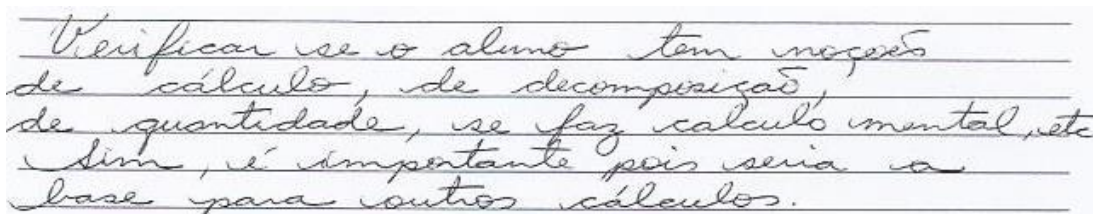 Verificar se o aluno tem noções
de cálculo, de decomposição,
de quantidade, se faz calculo mental, etc
Sim, é importante pois seria a
base para outros cálculos.